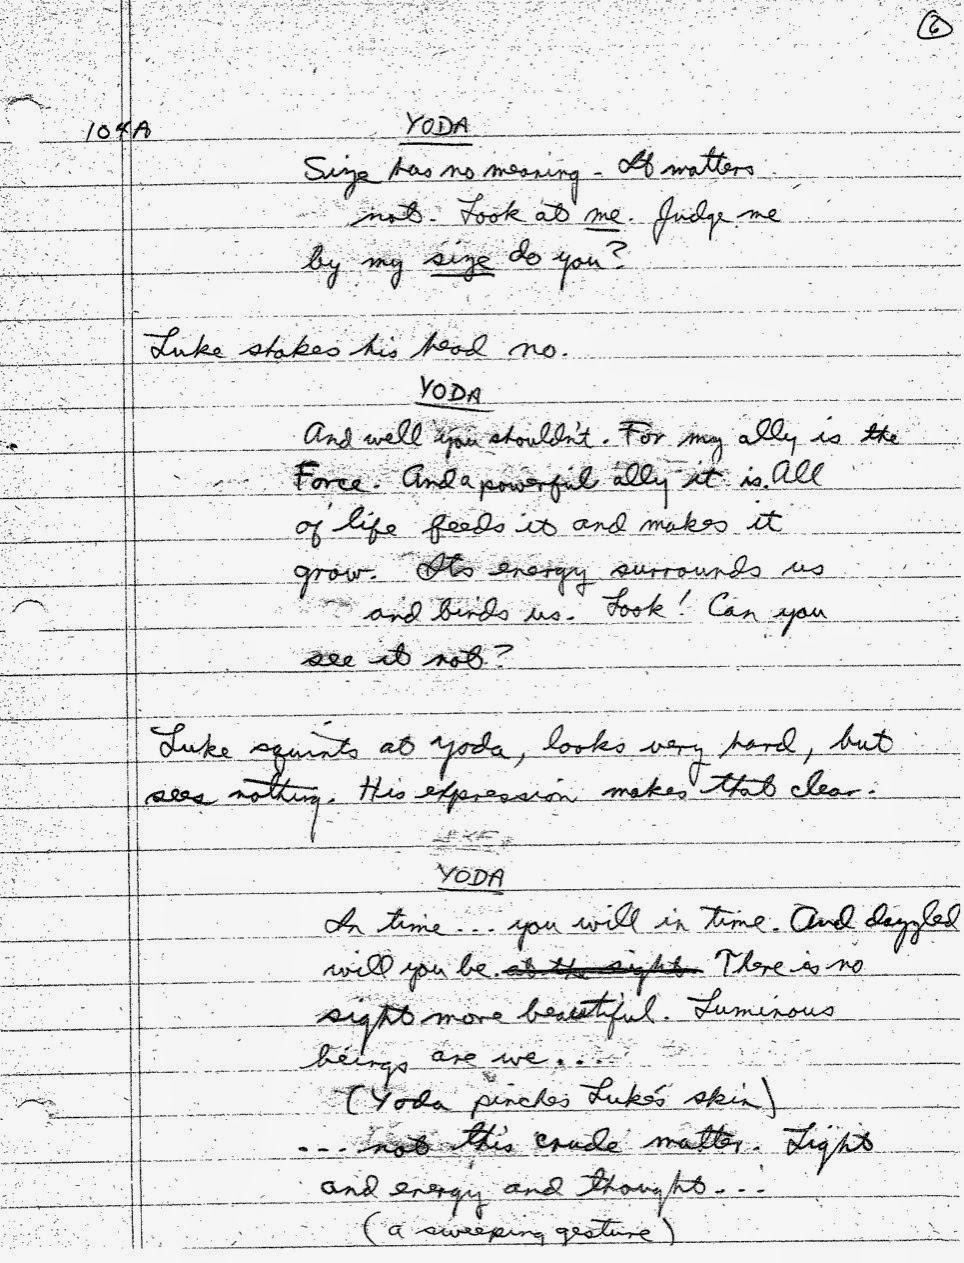 6
104A
YODA
Size has no meaning - It matters
not. Look at me. Judge me
by my size do you?
Luke shakes his head no.
YODA
And well you shouldn't. For my ally is the
Force. And a powerful ally it is. All
of life feeds it and makes it
grow. Its energy surrounds us
and binds us. Look! Can you
see it not?
Luke squints at Yoda, looks very hard, but
sees nothing. His expression makes that clear.
YODA
In time... you will in time. And dazzled
will you be. at the sight. There is no
sight more beautiful. Luminous
beings are we....
(Yoda pinches Luke's skin)
... not this crude matter. Light
and energy and thought...
(a sweeping gesture)